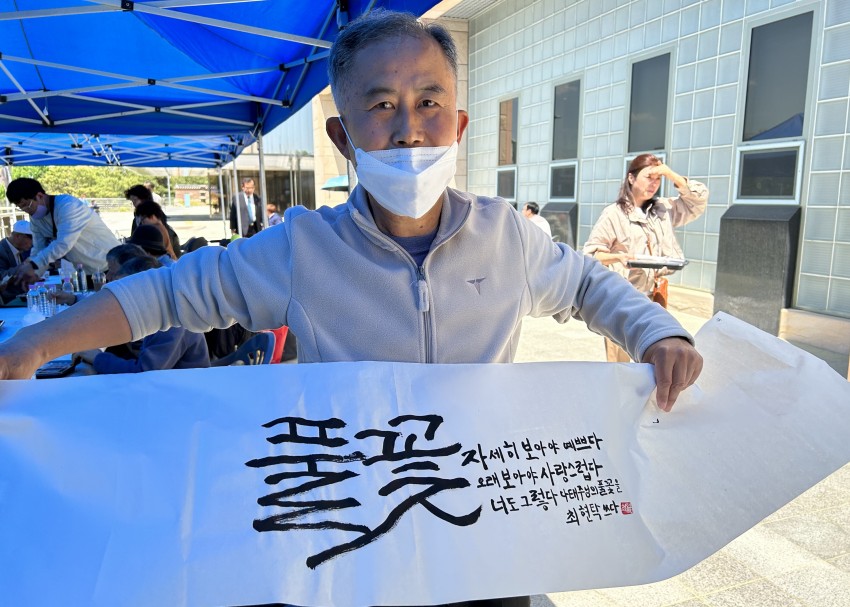 풀꽃
자세히 보아야 예쁘다
오래 보아야 사랑스럽다
너도 그렇다 나태주님의 풀꽃을
최현탁 쓰다